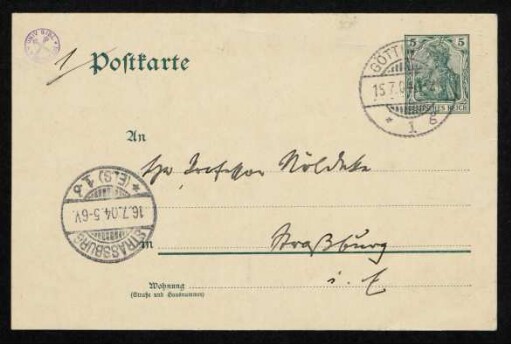 UNIV. BIBL.
1
Postkarte
5 5
DEUTSCHES REICH
GÖTTI
15.7.04
* 1 g
An
Professor Nöldeke
STRASSBURG * (ELS) 1 d
16.7.04.5-6V.
in Straßburg
i. E
Wohnung
(Straße und Hausnummer)